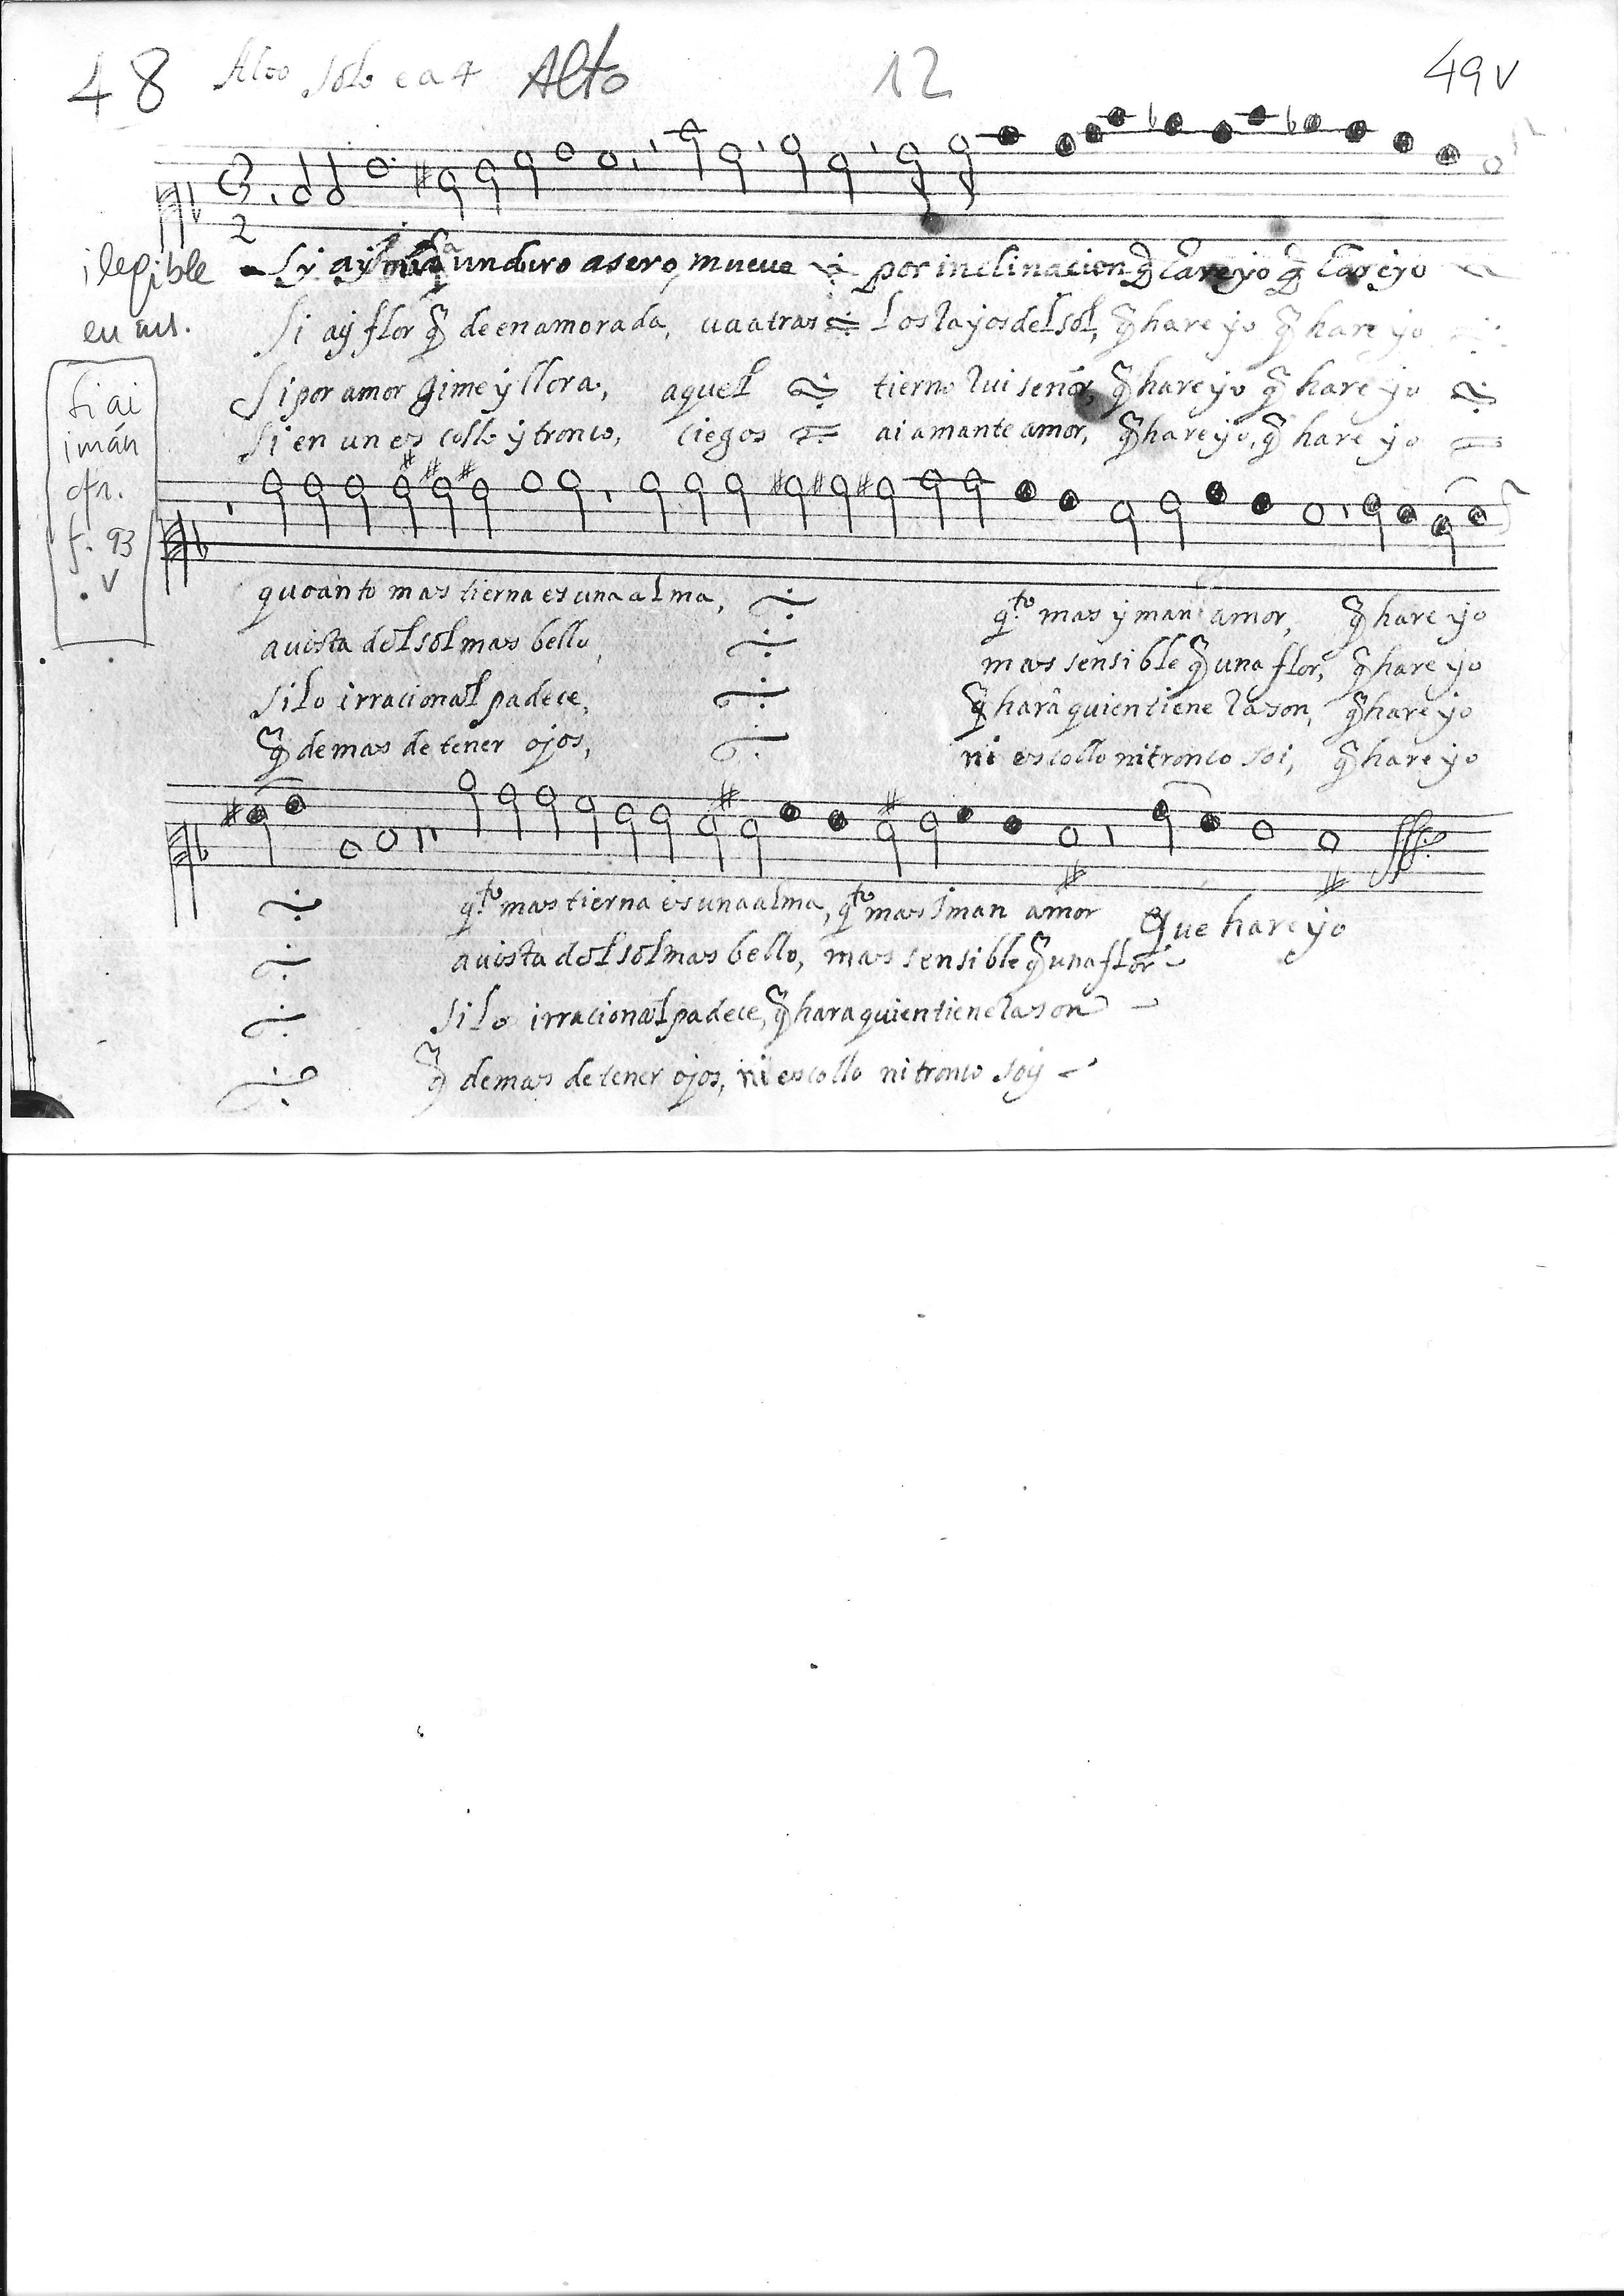 48 Alto solo e a 4 Alto 12 49v
ilegible en ms.
Si ai
imán
cfr.
f. 93
v
Sy ay un duro asero, mueve por inclinacion q̃ hare yo q̃ hare yo
Si ay flor q̃ de enamorada, va atras Los rayos del sol, q̃ hare yo q̃ hare yo
Si por amor gime y llora, aquel tierno rui señor, q̃ hare yo q̃ hare yo
Si en un es collo y tronco, ciegos ai amante amor, q̃ hare yo, q̃ hare yo
quoanto mas tierna es una alma, q.to mas y man amor, q̃ hare yo
a vista del sol mas bello, mas sensible q̃ una flor, q̃ hare yo
Si lo irracional padece, q̃ hara quien tiene rason, q̃ hare yo
q̃ demas de tener ojos, ni escollo ni tronco soi, q̃ hare yo
q.to mas tierna es una alma, q.to mas iman amor Que hare yo
a vista del sol mas bello, mas sensible q̃ una flor
Si lo irracional padece, q̃ hara quien tiene rason
q̃ demas de tener ojos, ni escollo ni tronco soy